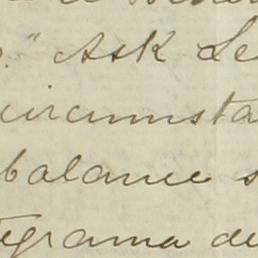 ." Ask Le
circumsta
balance s
tegrama de